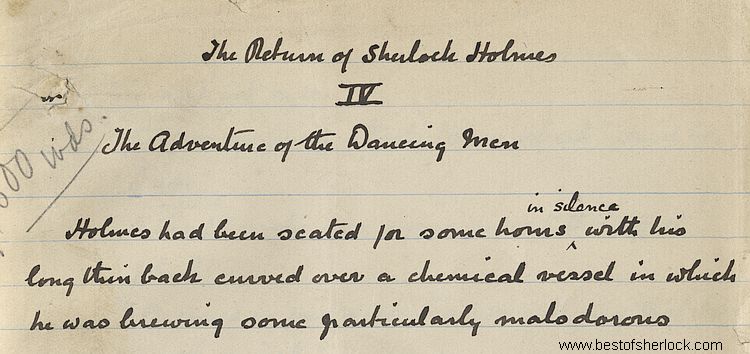 The Return of Sherlock Holmes
IV
The Adventure of the Dancing Men
wds.
in silence
Holmes had been seated for some hours ^ with his
long thin back curved over a chemical vessel in which
he was brewing some particularly malodorous
www.bestofsherlock.com